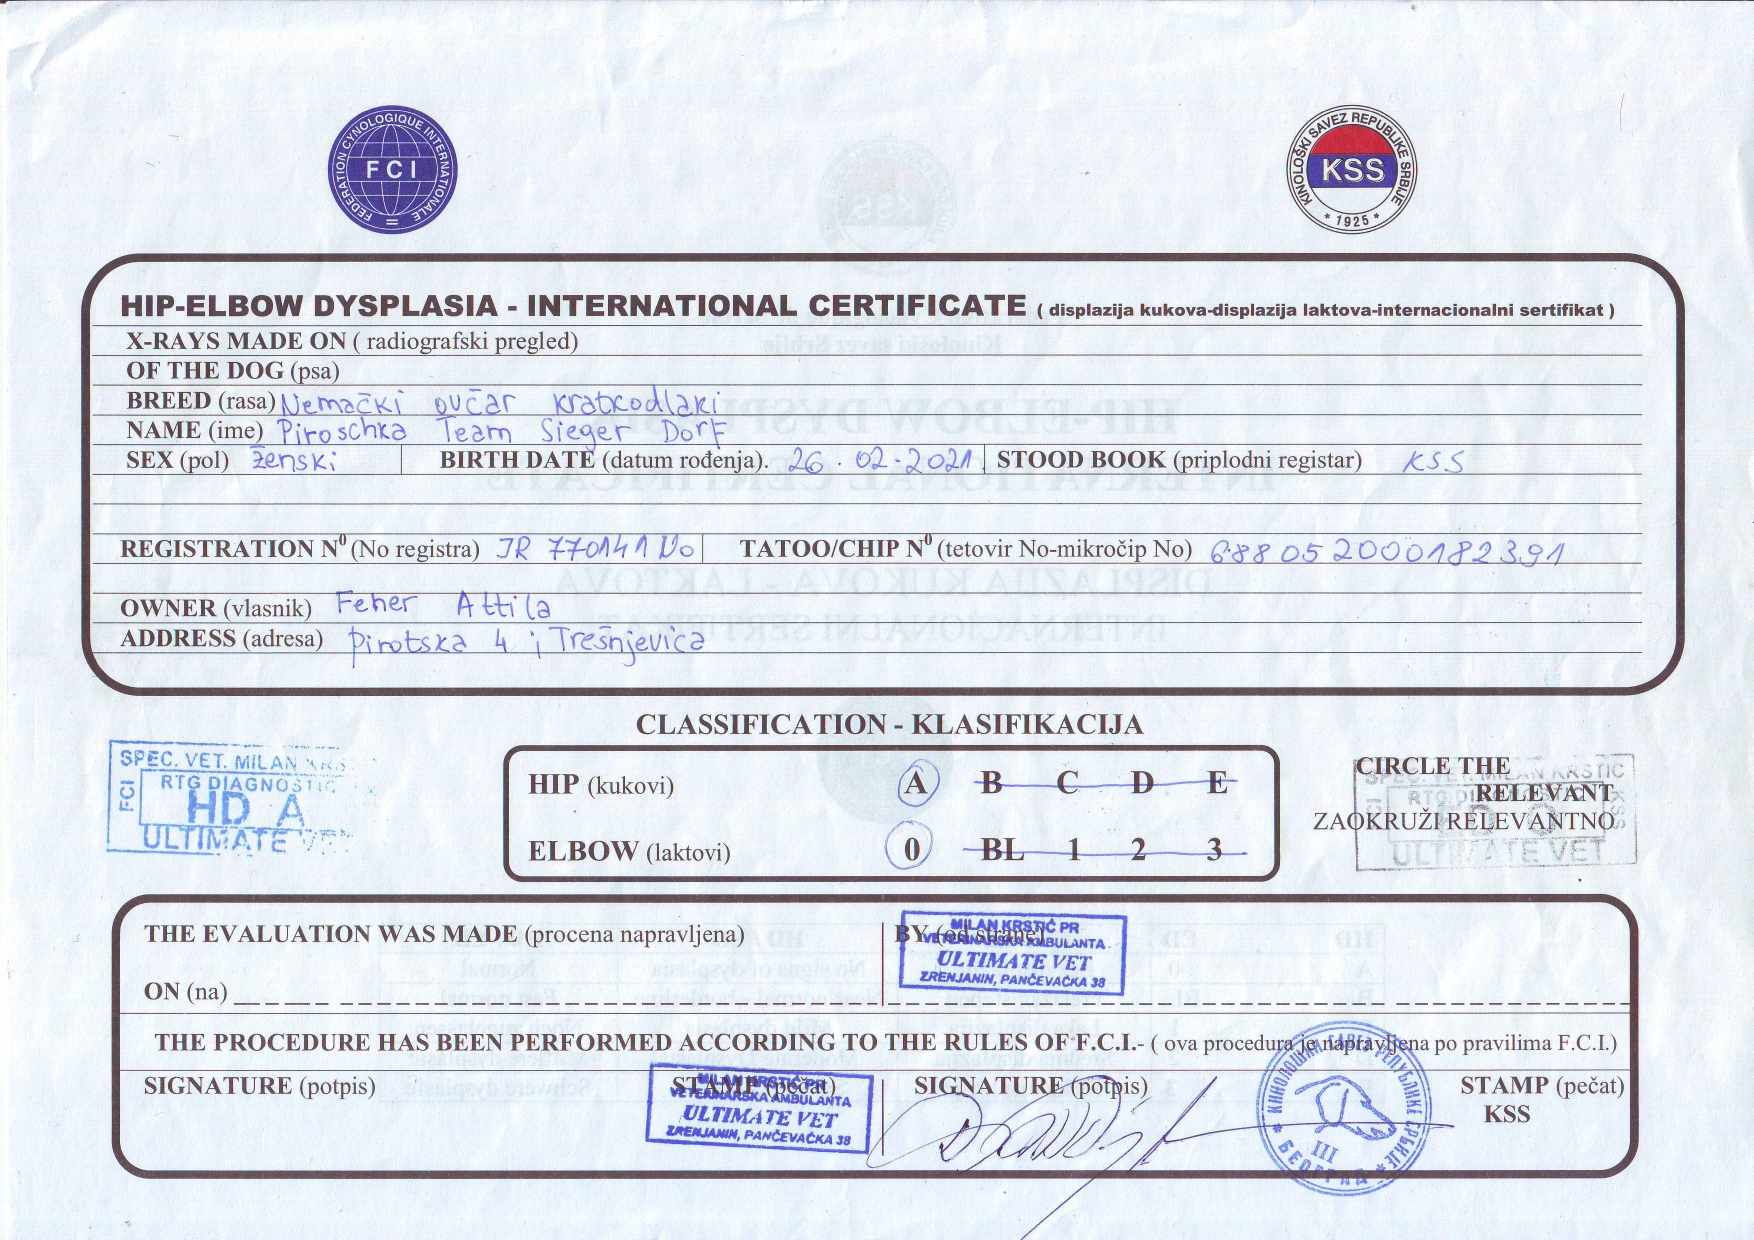 FEDERATION CYNOLOGIQUE INTERNATIONALE
FCI
KINOLOŠKI SAVEZ REPUBLIKE SRBIJE
KSS
* 1925 *
HIP-ELBOW DYSPLASIA - INTERNATIONAL CERTIFICATE ( displazija kukova-displazija laktova-internacionalni sertifikat )
X-RAYS MADE ON ( radiografski pregled)
OF THE DOG (psa)
BREED (rasa) Nemački ovčar kratkodlaki
NAME (ime) Piroschka Team Sieger Dorf
SEX (pol) ženski BIRTH DATE (datum rođenja). 26.02.2021 STOOD BOOK (priplodni registar) KSS
REGISTRATION N⁰ (No registra) JR 770141 No TATOO/CHIP N⁰ (tetovir No-mikročip No) 688052000182391
OWNER (vlasnik) Feher Attila
ADDRESS (adresa) Pirotska 4 ; Trešnjevica
CLASSIFICATION - KLASIFIKACIJA
SPEC. VET. MILAN
FCI
RTG DIAGNOSTIC
HD A
ULTIMATE VET
HIP (kukovi) A B C D E
ELBOW (laktovi) 0 BL 1 2 3
CIRCLE THE
RELEVANT
ZAOKRUŽI RELEVANTNO
SPEC. VET. MILAN KRSTIC
ULTIMATE VET
THE EVALUATION WAS MADE (procena napravljena) BY (od strane)
MILAN KRSTIĆ PR
VETERINARSKA AMBULANTA
ULTIMATE VET
ZRENJANIN, PANČEVAČKA 38
ON (na)
THE PROCEDURE HAS BEEN PERFORMED ACCORDING TO THE RULES OF F.C.I.- ( ova procedura je napravljena po pravilima F.C.I.)
SIGNATURE (potpis) STAMP (pečat) SIGNATURE (potpis) STAMP (pečat)
KSS
MILAN KRSTIĆ PR
VETERINARSKA AMBULANTA
ULTIMATE VET
ZRENJANIN, PANČEVAČKA 38
КИНОЛОШКИ САВЕЗ РЕПУБЛИКЕ СРБИЈЕ
III
* БЕОГРАД *